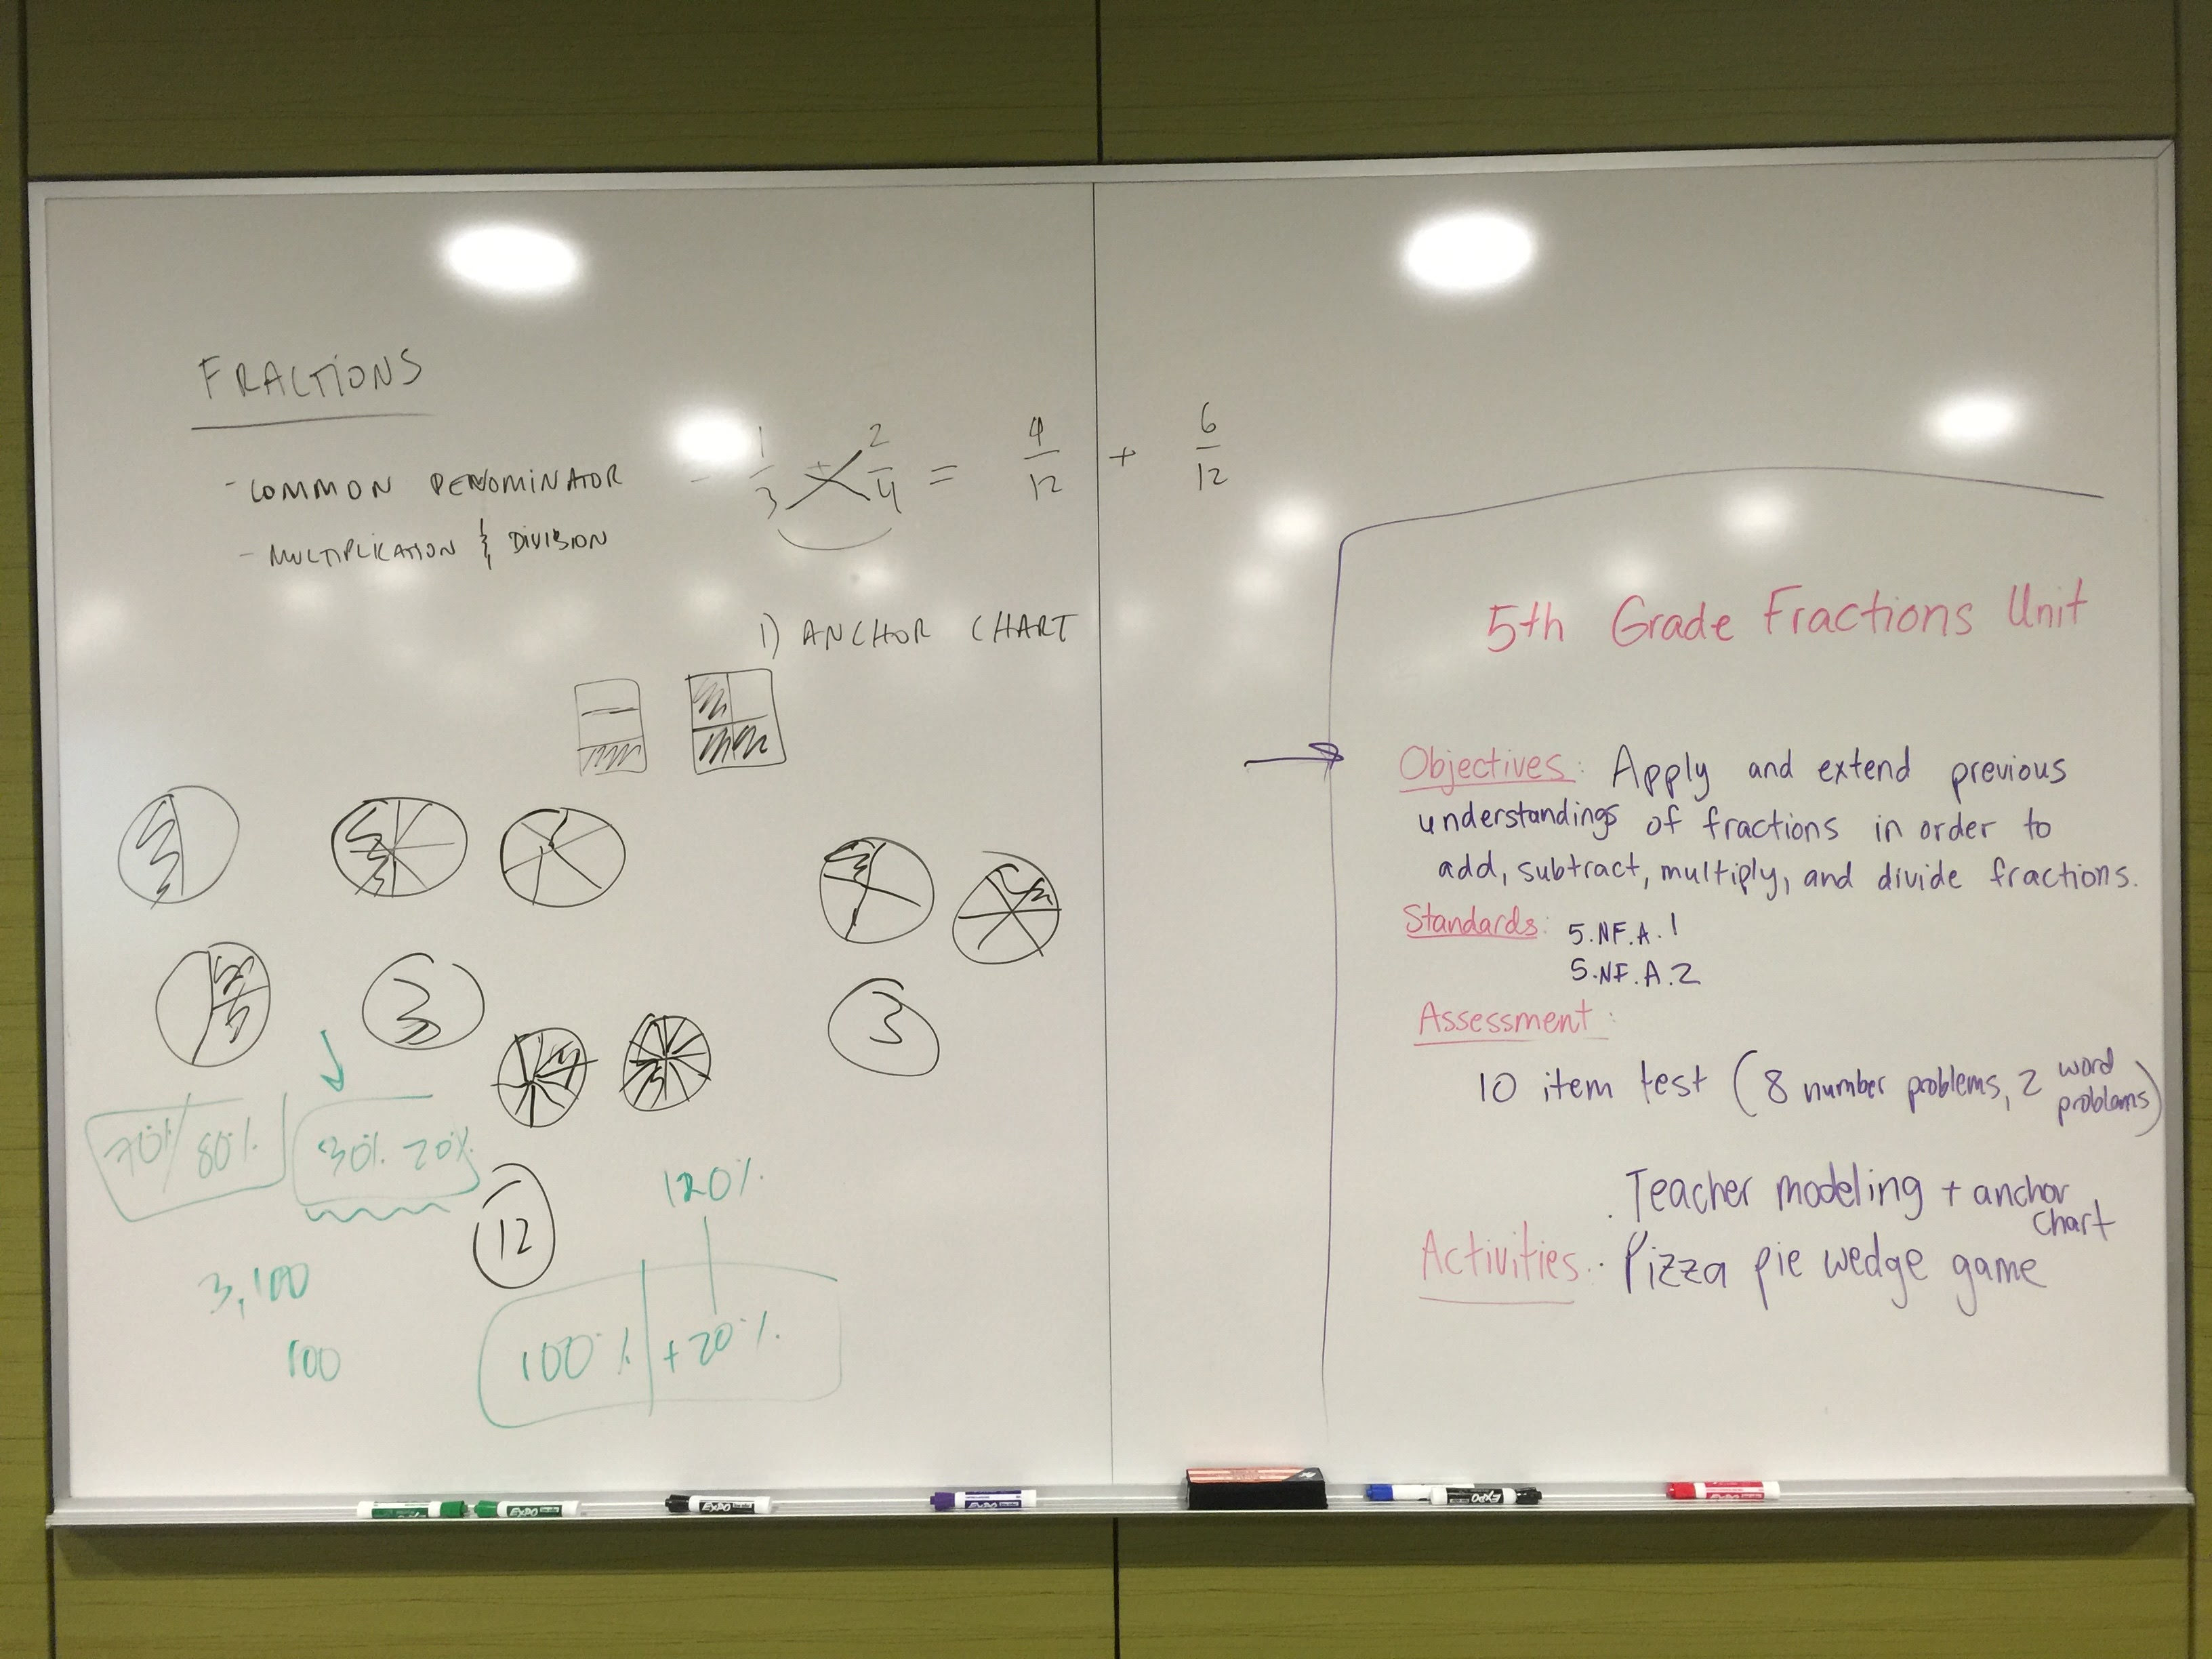 FRACTIONS
- COMMON DENOMINATOR
- MULTIPLICATION & DIVISION
- 1/3 + 2/4 = 4/12 + 6/12
1) ANCHOR CHART
3
3
12
70% / 80%
30% 20%
3,100
100
120%
100% | +20%
5th Grade Fractions Unit
Objectives: Apply and extend previous
understandings of fractions in order to
add, subtract, multiply, and divide fractions.
Standards: 5.NF.A.1
5.NF.A.2
Assessment:
10 item test (8 number problems, 2 word
problems)
. Teacher modeling + anchor
chart
Activities: . Pizza pie wedge game
EXPO
EXPO
EXPO
EXPO